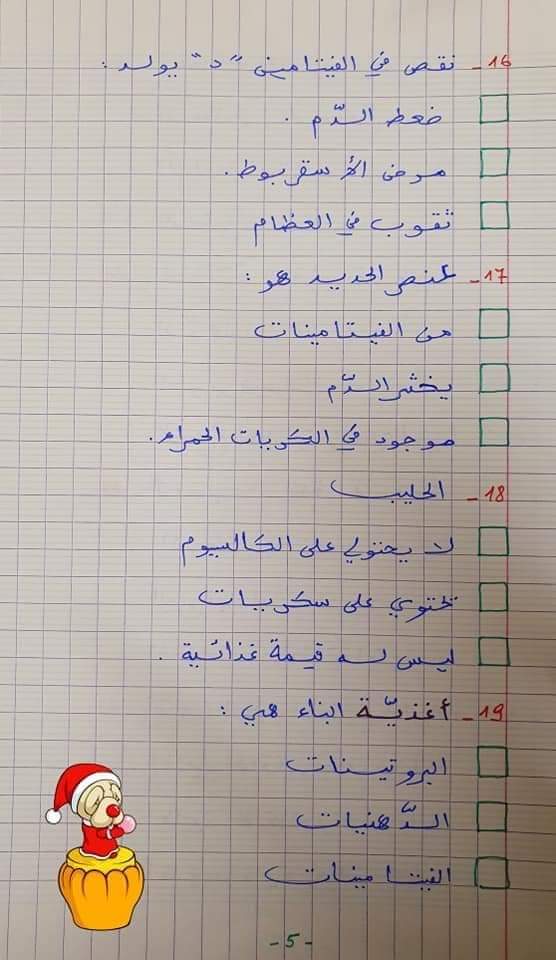 16- نقص في الفيتامين "د" يولد :
ضغط الدّم .
مرض الأسقربوط .
ثقوب في العظام
17- عنصر الحديد هو :
من الفيتامينات
يخثر الدّم
موجود في الكريات الحمراء .
18- الحليب
لا يحتوي على الكالسيوم
تحتوي على سكريات
ليس له قيمة غذائية .
19- أغذيّة البناء هي :
البروتينات
الدّهنيات
الفيتامينات
-5-